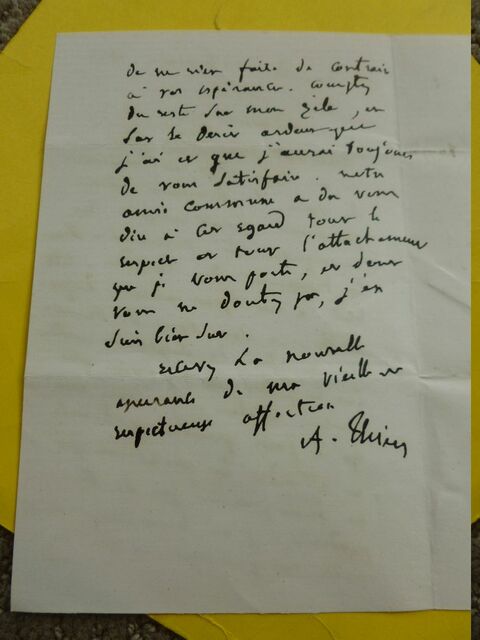 de ne rien faire de contraire
à vos espérances. comptez
du reste sur mon zèle, et
sur le désir ardent que
j'ai et que j'aurai toujours
de vous satisfaire. notre
amie commune a du vous
dire à cet égard tout le
respect et tout l'attachement
que je vous porte, et dont
vous ne doutez pas, j'en
suis bien sur.
recevez la nouvelle
assurance de ma vieille et
respectueuse affection
A. Thiers